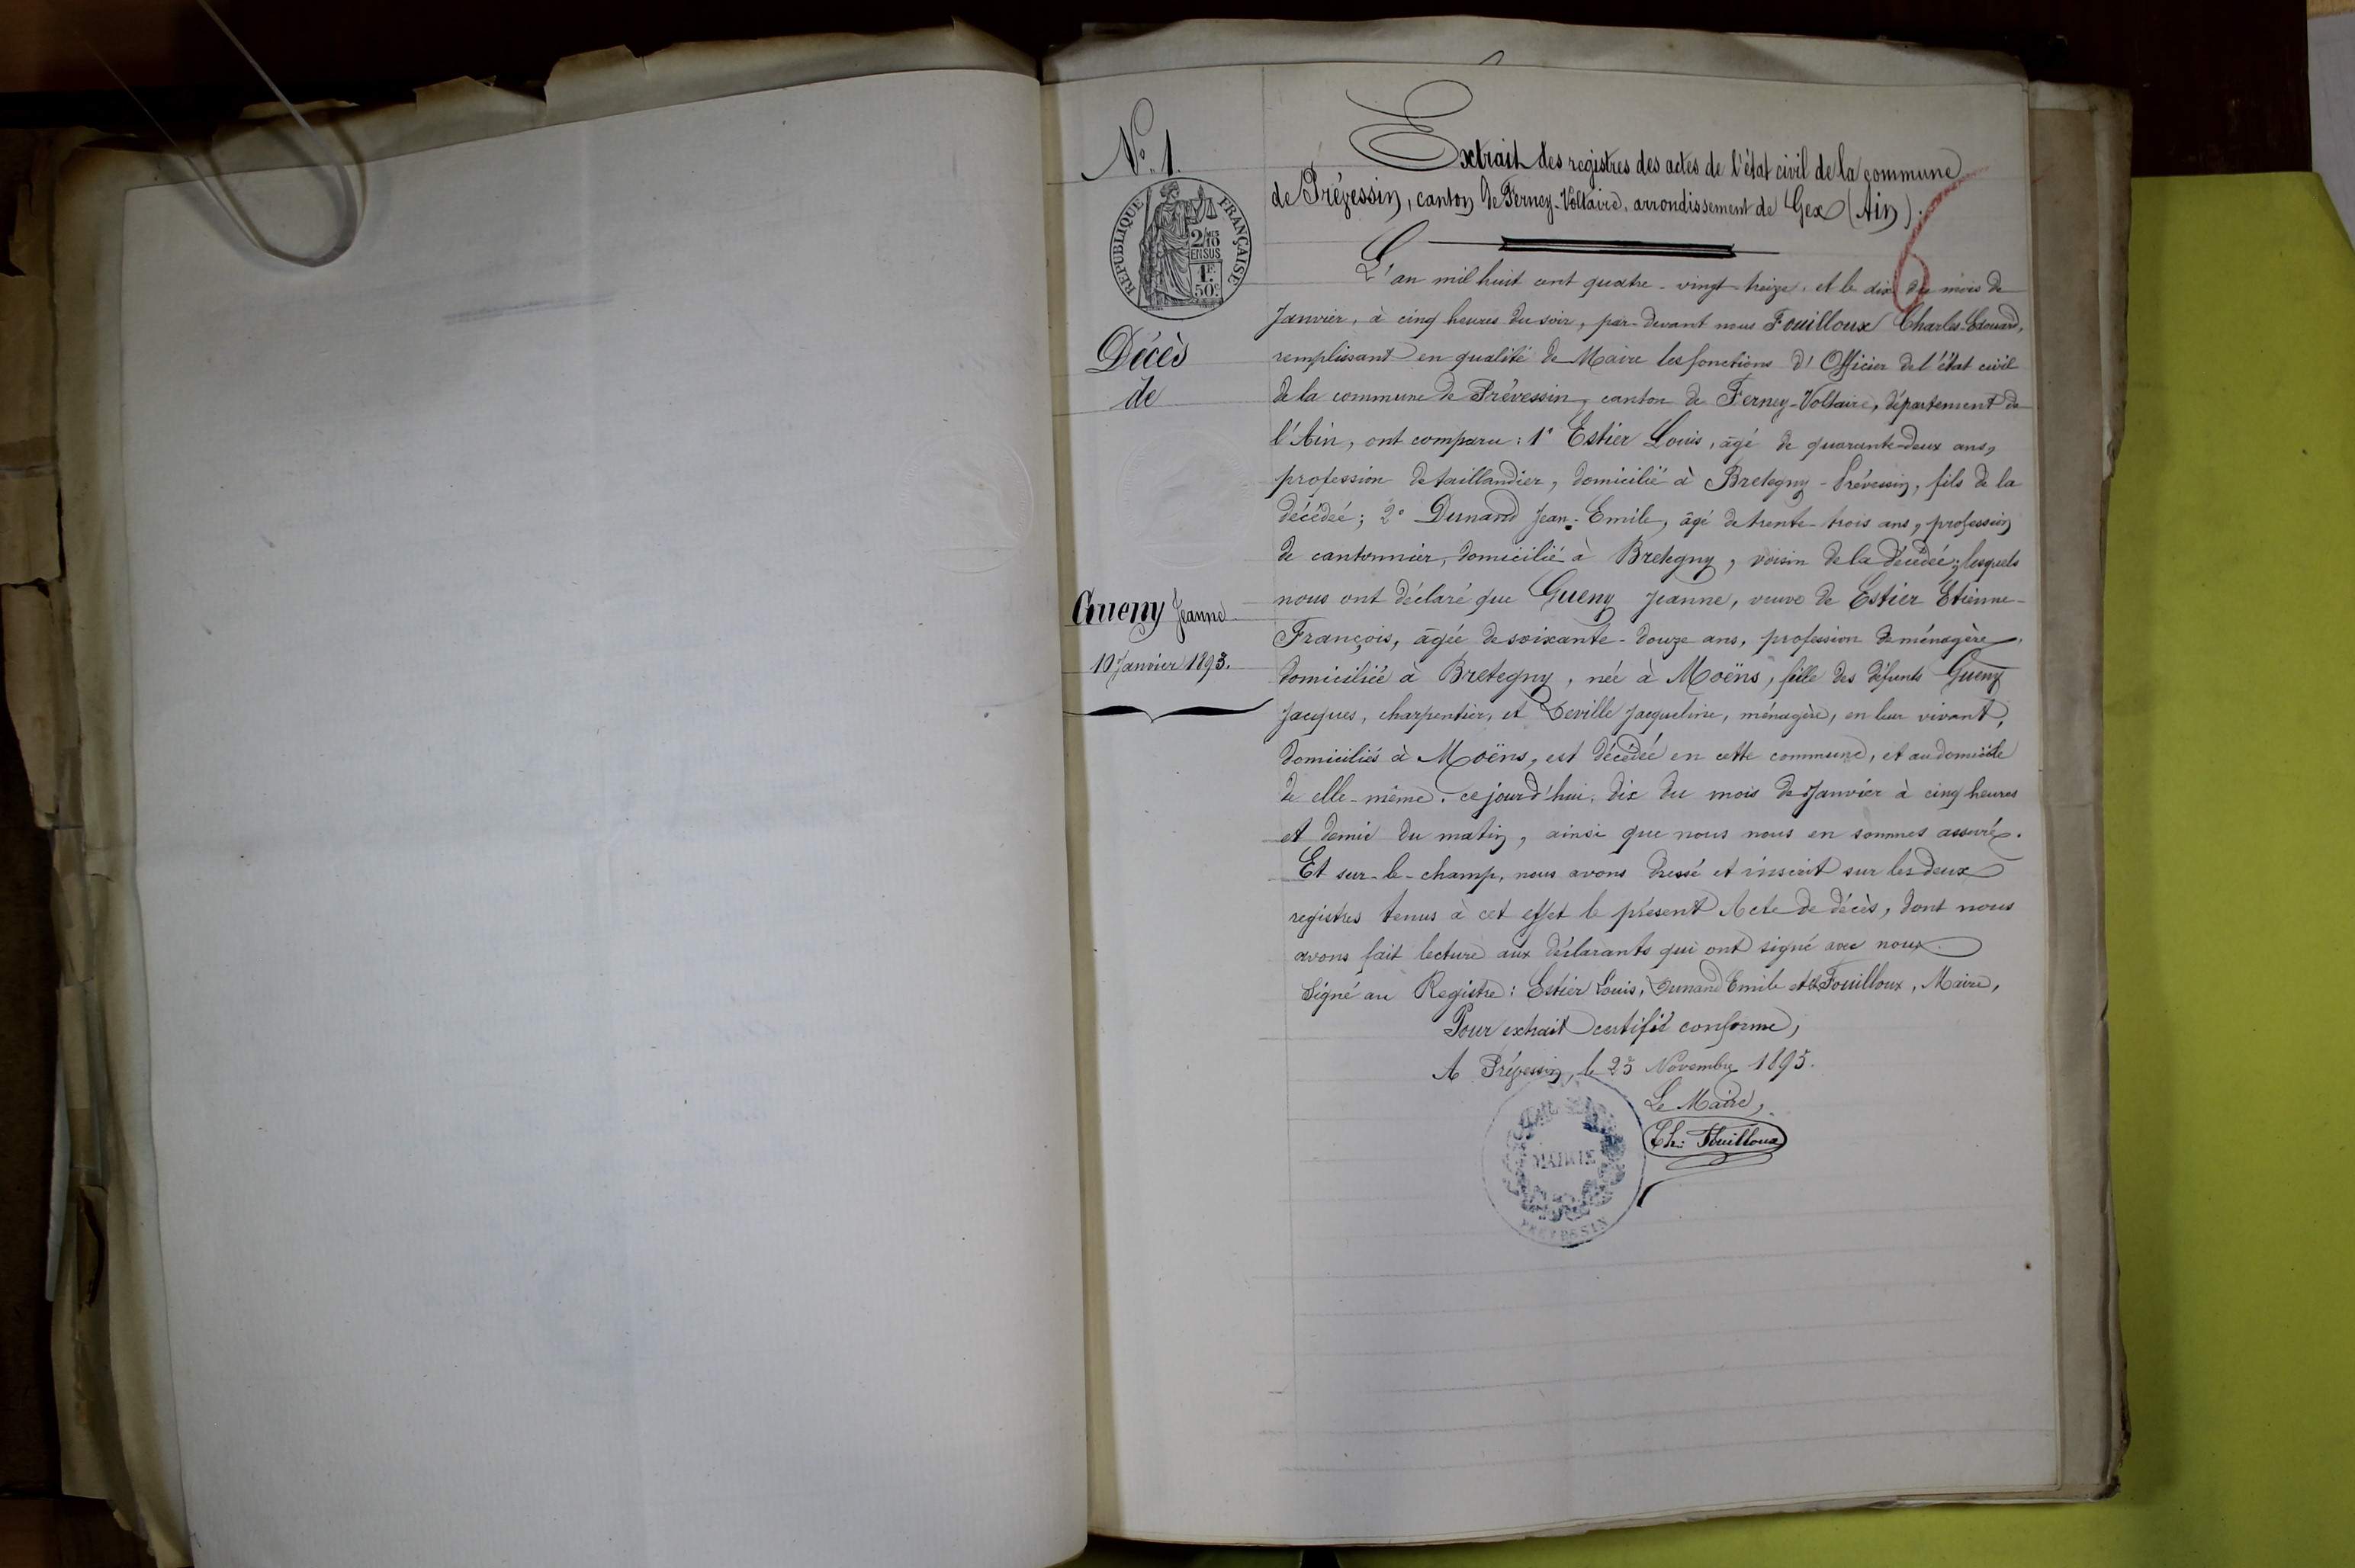 N° 1.
RÉPUBLIQUE FRANÇAISE
2/10
EN SUS
1F.
50c.
Décès
de
Gueny Jeanne
10 Janvier 1893.
Extrait des registres des actes de l'état civil de la commune
de Prévessin, canton de Ferney-Voltaire, arrondissement de Gex (Ain).
6
L'an mil huit cent quatre-vingt-treize, et le dix du mois de
Janvier, à cinq heures du soir, par-devant nous Fouilloux Charles-Edouard,
remplissant en qualité de Maire les fonctions d'Officier de l'état civil
de la commune de Prévessin, canton de Ferney-Voltaire, département de
l'Ain, ont comparu : 1° Estier Louis, âgé de quarante-deux ans,
profession de taillandier, domicilié à Bretegny-Prévessin, fils de la
décédée; 2° Dunand Jean-Emile, âgé de trente-trois ans, profession
de cantonnier, domicilié à Bretegny, voisin de la décédée; lesquels
nous ont déclaré que Gueny Jeanne, veuve de Estier Etienne-
François, âgée de soixante-douze ans, profession de ménagère,
domiciliée à Bretegny, née à Moëns, fille des défunts Gueny
Jacques, charpentier, et Deville Jacqueline, ménagère, en leur vivant,
domiciliés à Moëns, est décédée en cette commune, et au domicile
de elle-même, cejourd'hui, dix du mois de Janvier à cinq heures
et demie du matin, ainsi que nous nous en sommes assuré.
Et sur-le-champ, nous avons dressé et inscrit sur les deux
registres tenus à cet effet le présent Acte de décès, dont nous
avons fait lecture aux déclarants qui ont signé avec nous.
Signé au Registre : Estier Louis, Dunand Emile et Fouilloux, Maire,
Pour extrait certifié conforme,
A Prévessin, le 25 Novembre 1895.
Le Maire,
Ch: Fouilloux
MAIRIE
PREVESSIN